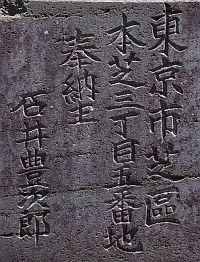 東京市芝區
本芝三丁目五番地
奉納主
石井豊次郎